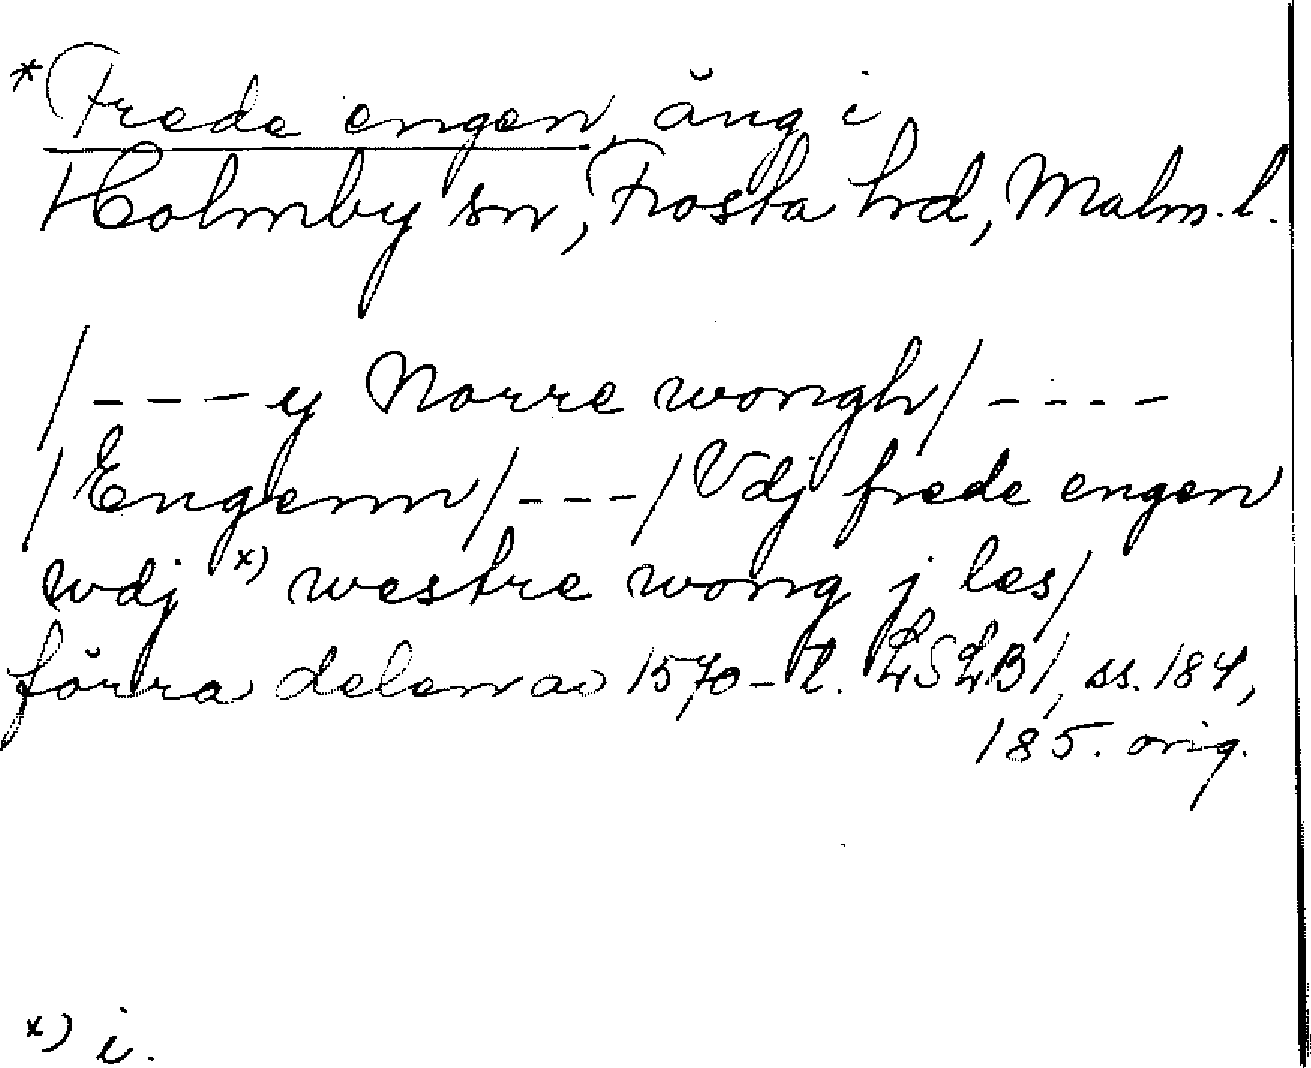 *Frede engen, äng i
Holmby sn, Frosta hrd, Malm. l.
/---y Norre wongh/----
/Engenn/---/Vdj frede engen
wdj x) westre wong j les/
förra delen av 1570-t. LSLB1, ss. 184,
185. orig.
x) i.